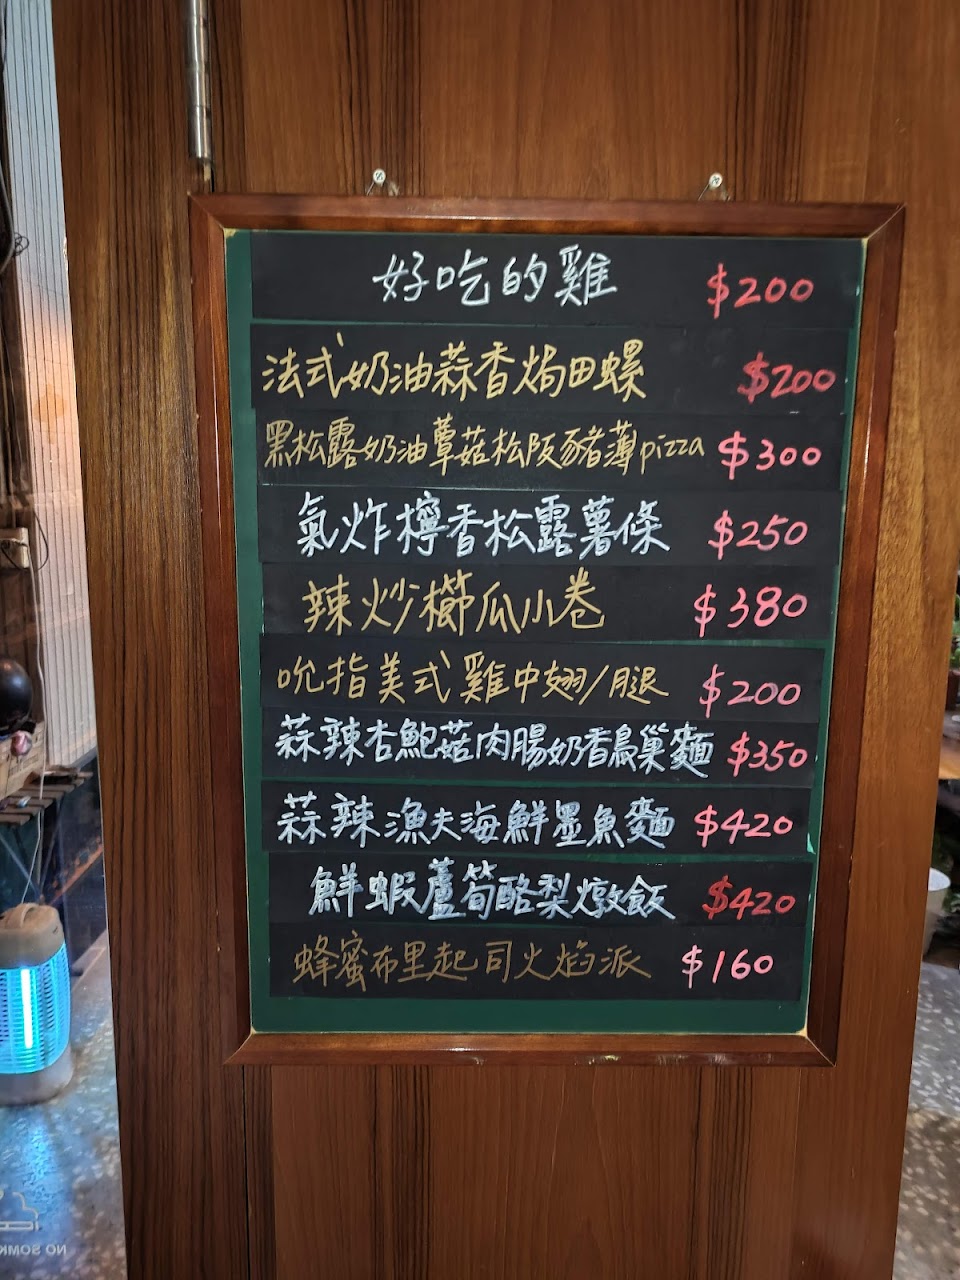 好吃的雞 $200
法式奶油蒜香焗田螺 $200
黑松露奶油蕈菇松阪豬薄pizza $300
氣炸檸香松露薯條 $250
辣炒櫛瓜小卷 $380
吮指美式雞中翅/腿 $200
蒜辣杏鮑菇肉腸奶香鳥巢麵 $350
蒜辣漁夫海鮮墨魚麵 $420
鮮蝦蘆筍酪梨燉飯 $420
蜂蜜布里起司火焰派 $160